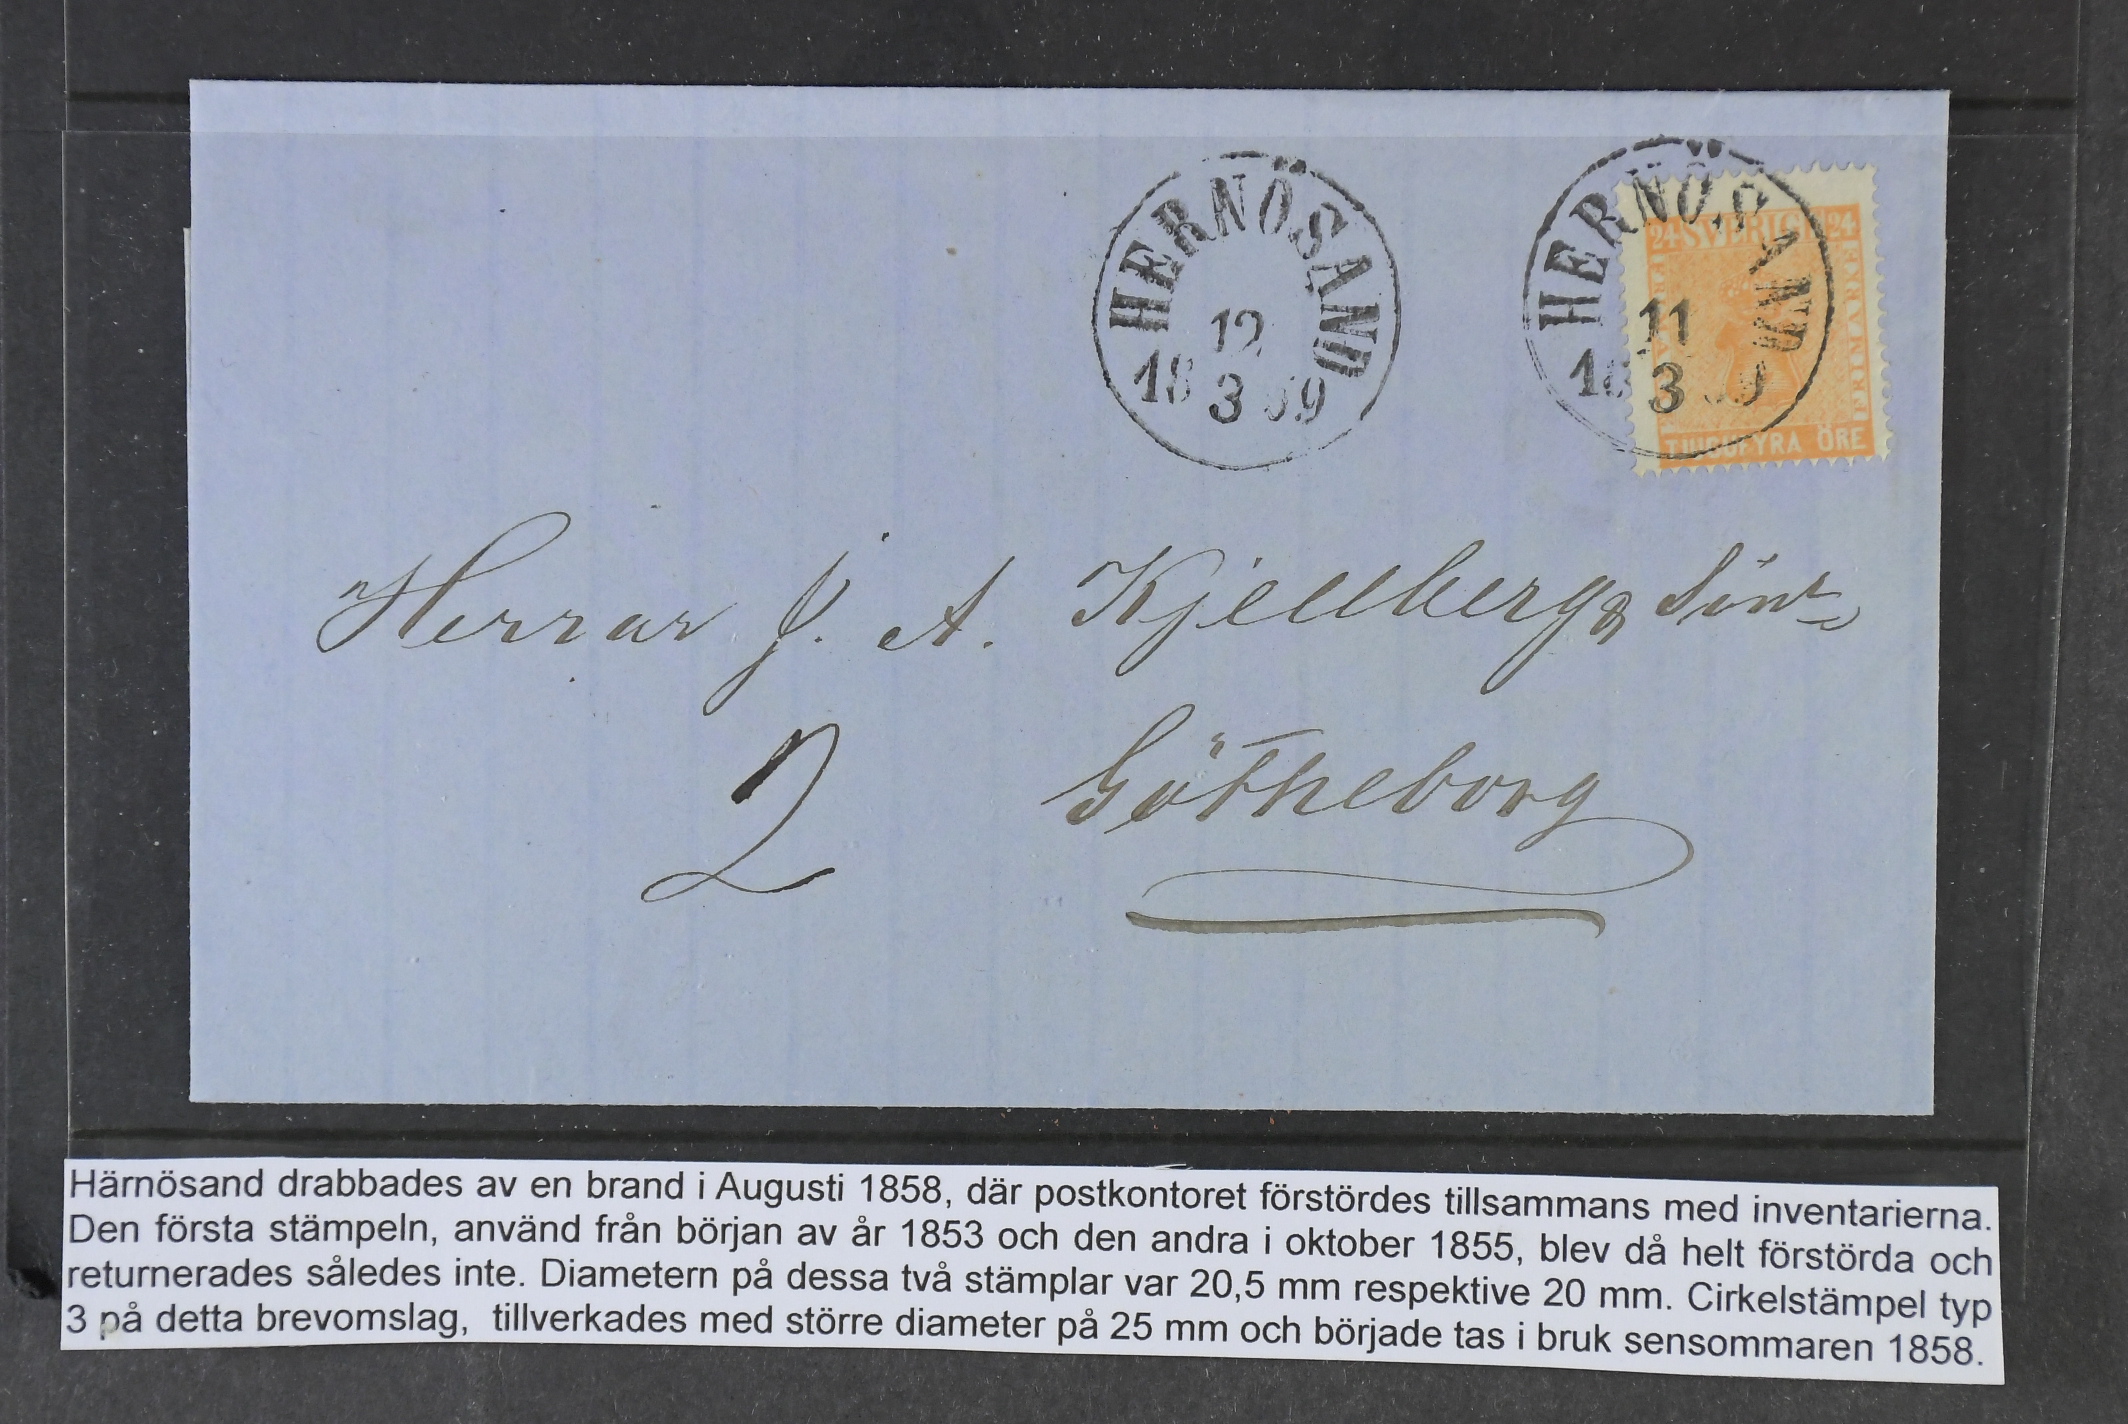 HERNÖSAND
12
18 3 59
HERNÖSAND
11
18 3 59
24 SVERIGE 24
FRIMÄRKE
TJUGUFYRA ÖRE
Herrar J. A. Kjellberg & Söner
2 Götheborg
Härnösand drabbades av en brand i Augusti 1858, där postkontoret förstördes tillsammans med inventarierna.
Den första stämpeln, använd från början av år 1853 och den andra i oktober 1855, blev då helt förstörda och
returnerades således inte. Diametern på dessa två stämplar var 20,5 mm respektive 20 mm. Cirkelstämpel typ
3 på detta brevomslag, tillverkades med större diameter på 25 mm och började tas i bruk sensommaren 1858.